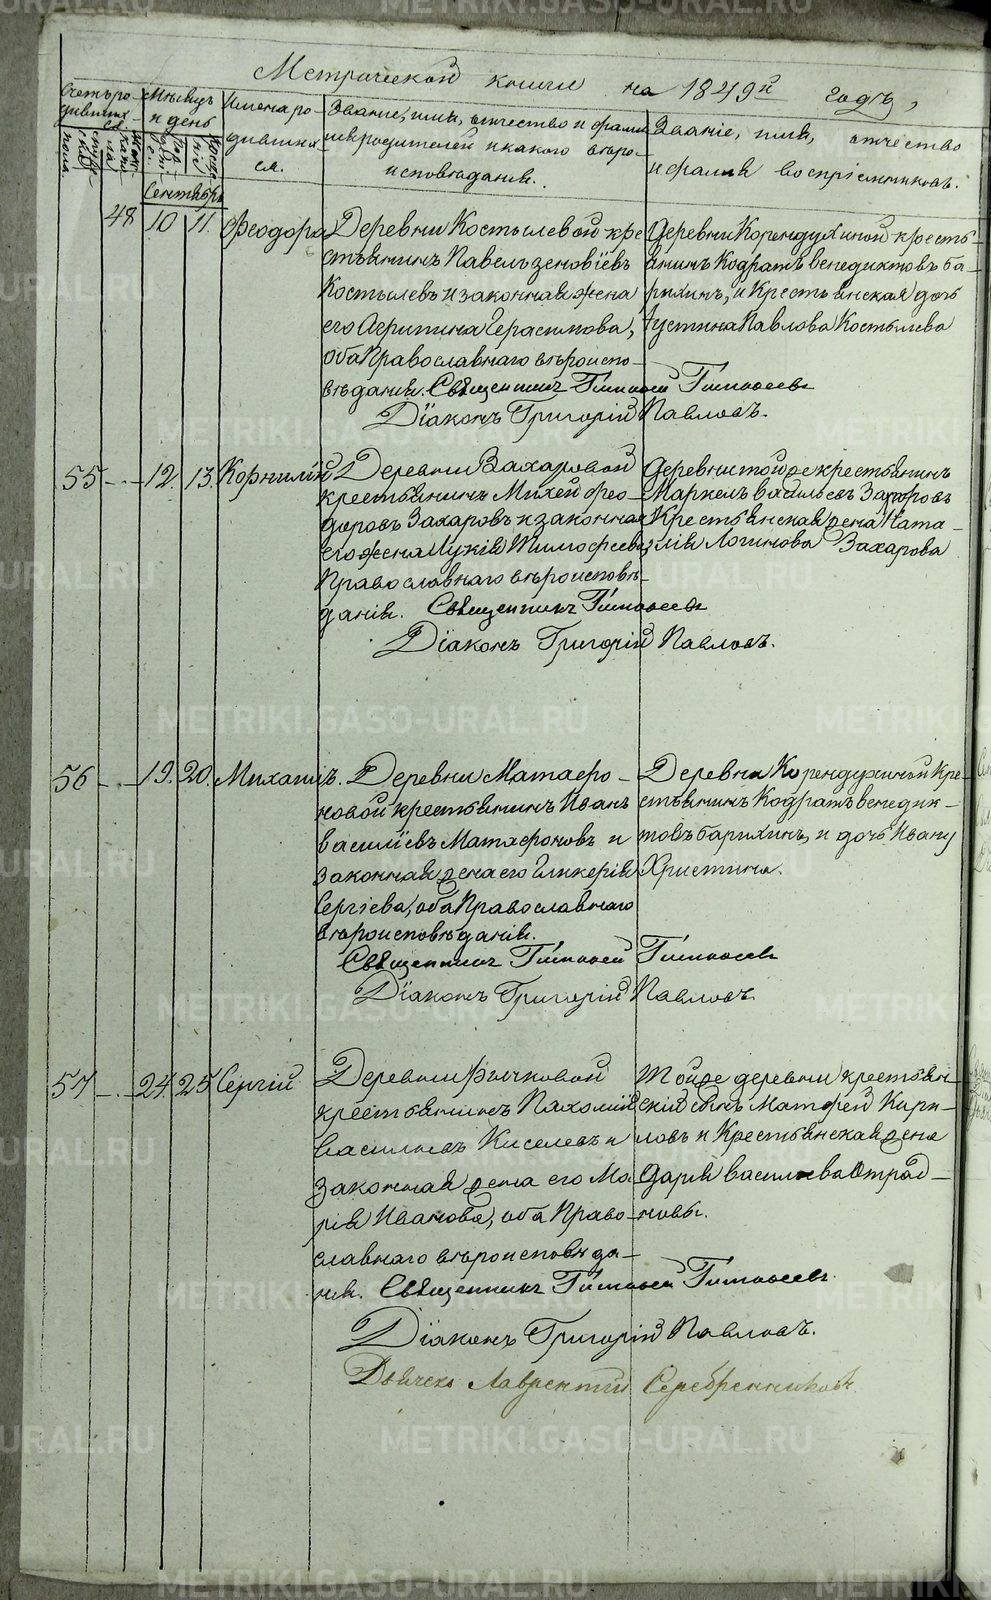 METRIKI.GASO-URAL.RU
Метрической книги на 1849й годъ,
Счетъ родившихся
Мѣсяцъ и день
Имена родившихся.
Званіе, имя, отчество и фамилія родителей и какого вѣроисповѣданія.
Званіе, имя, отчество и фамилія воспріемниковъ.
Сентябрь
48 10 11. Феодора
Деревни Костылевой кре-
стьянинъ Павелъ зеновіевъ
Костылевъ и законная жена
его Агрипина Герасимова,
оба Православнаго вѣроиспо-
вѣданія. Священникъ Тимофей Тимофеевъ
Діаконъ Григорій Павловъ.
Деревни Корендухиной кресть-
янинъ Кодратъ венедиктовъ ба-
рихинъ, и Крестьянская дочь
Устина Павлова Костылева
55 - . - 12. 13. Корнилій
Деревни Захаровой
крестьянинъ Михей фео-
доровъ Захаровъ и законная
его жена Лукія Тимофеева,
Православнаго вѣроисповѣ-
данія. Священникъ Тимофеевъ
Діаконъ Григорій Павловъ.
Деревни той же крестьянинъ
Маркелъ васильевъ Захаровъ
Крестьянская жена Ната-
лія Логинова Захарова
56 - . - 19. 20. Михаилъ.
Деревни Матафо-
новой крестьянинъ Иванъ
василіевъ Матафоновъ и
законная жена его Гликерія
Сергіева, оба Православнаго
вѣроисповѣданія.
Священникъ Тимофей Тимофеевъ
Діаконъ Григорій Павловъ.
Деревни Корендухиной кре-
стьянинъ Кодратъ венедик-
товъ барихинъ, и дочь Ивану
Христина.
57 - . - 24. 25. Сергій
Деревни Фычковой
крестьянинъ Пахомій
Васильевъ Киселевъ и
законная жена его Ма-
рія Иванова, оба Право-
славнаго вѣроисповѣда-
нія. Священникъ Тимофей Тимофеевъ.
Діаконъ Григорій Павловъ.
Дьячекъ Лаврентій Серебренниковъ.
Той же деревни крестьян-
скій сынъ Матфей Кири-
ловъ и Крестьянская жена
Дарія василиева Отрад-
новы.